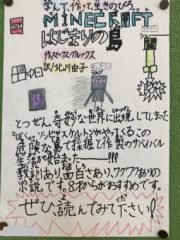 学んで、作って、生きのびろ。
MINECRAFT
はじまりの島
作/マックス・ブルックス
訳/北川由子
とつぜん奇妙な世界に出現してしまった
ぼく。ゾンビやスケルトンがやってくるこの
危険な島で採掘と作製のサバイバル
生活が始まった――!!!
教訓あり、面白さあり、ワクワクありの
小説です。8才からがおすすめです。
ぜひ、読んでみて下さい!